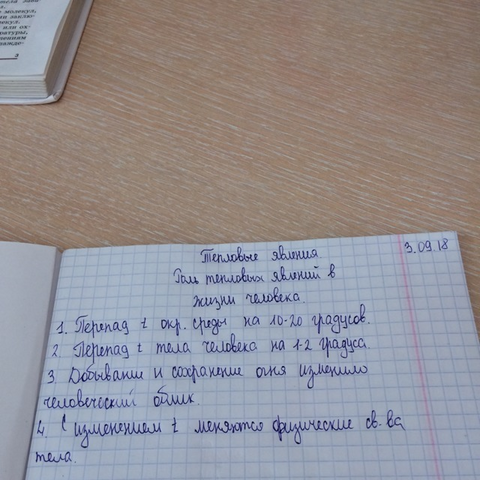 тела зави-
молекул,
заклю-
лекул;
или ох-
ратуры,
нениям
3
3.09.18
Тепловые явления
Роль тепловых явлений в
жизни человека
1. Перепад t окр. среды на 10-20 градусов.
2. Перепад t тела человека на 1-2 градуса.
3. Добывание и сохранение огня изменило
человеческий облик.
4. С изменением t меняются физические св.ва
тела.